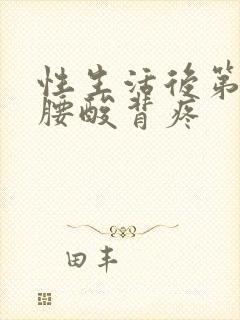 性生活後第
腰酸背疼
田丰